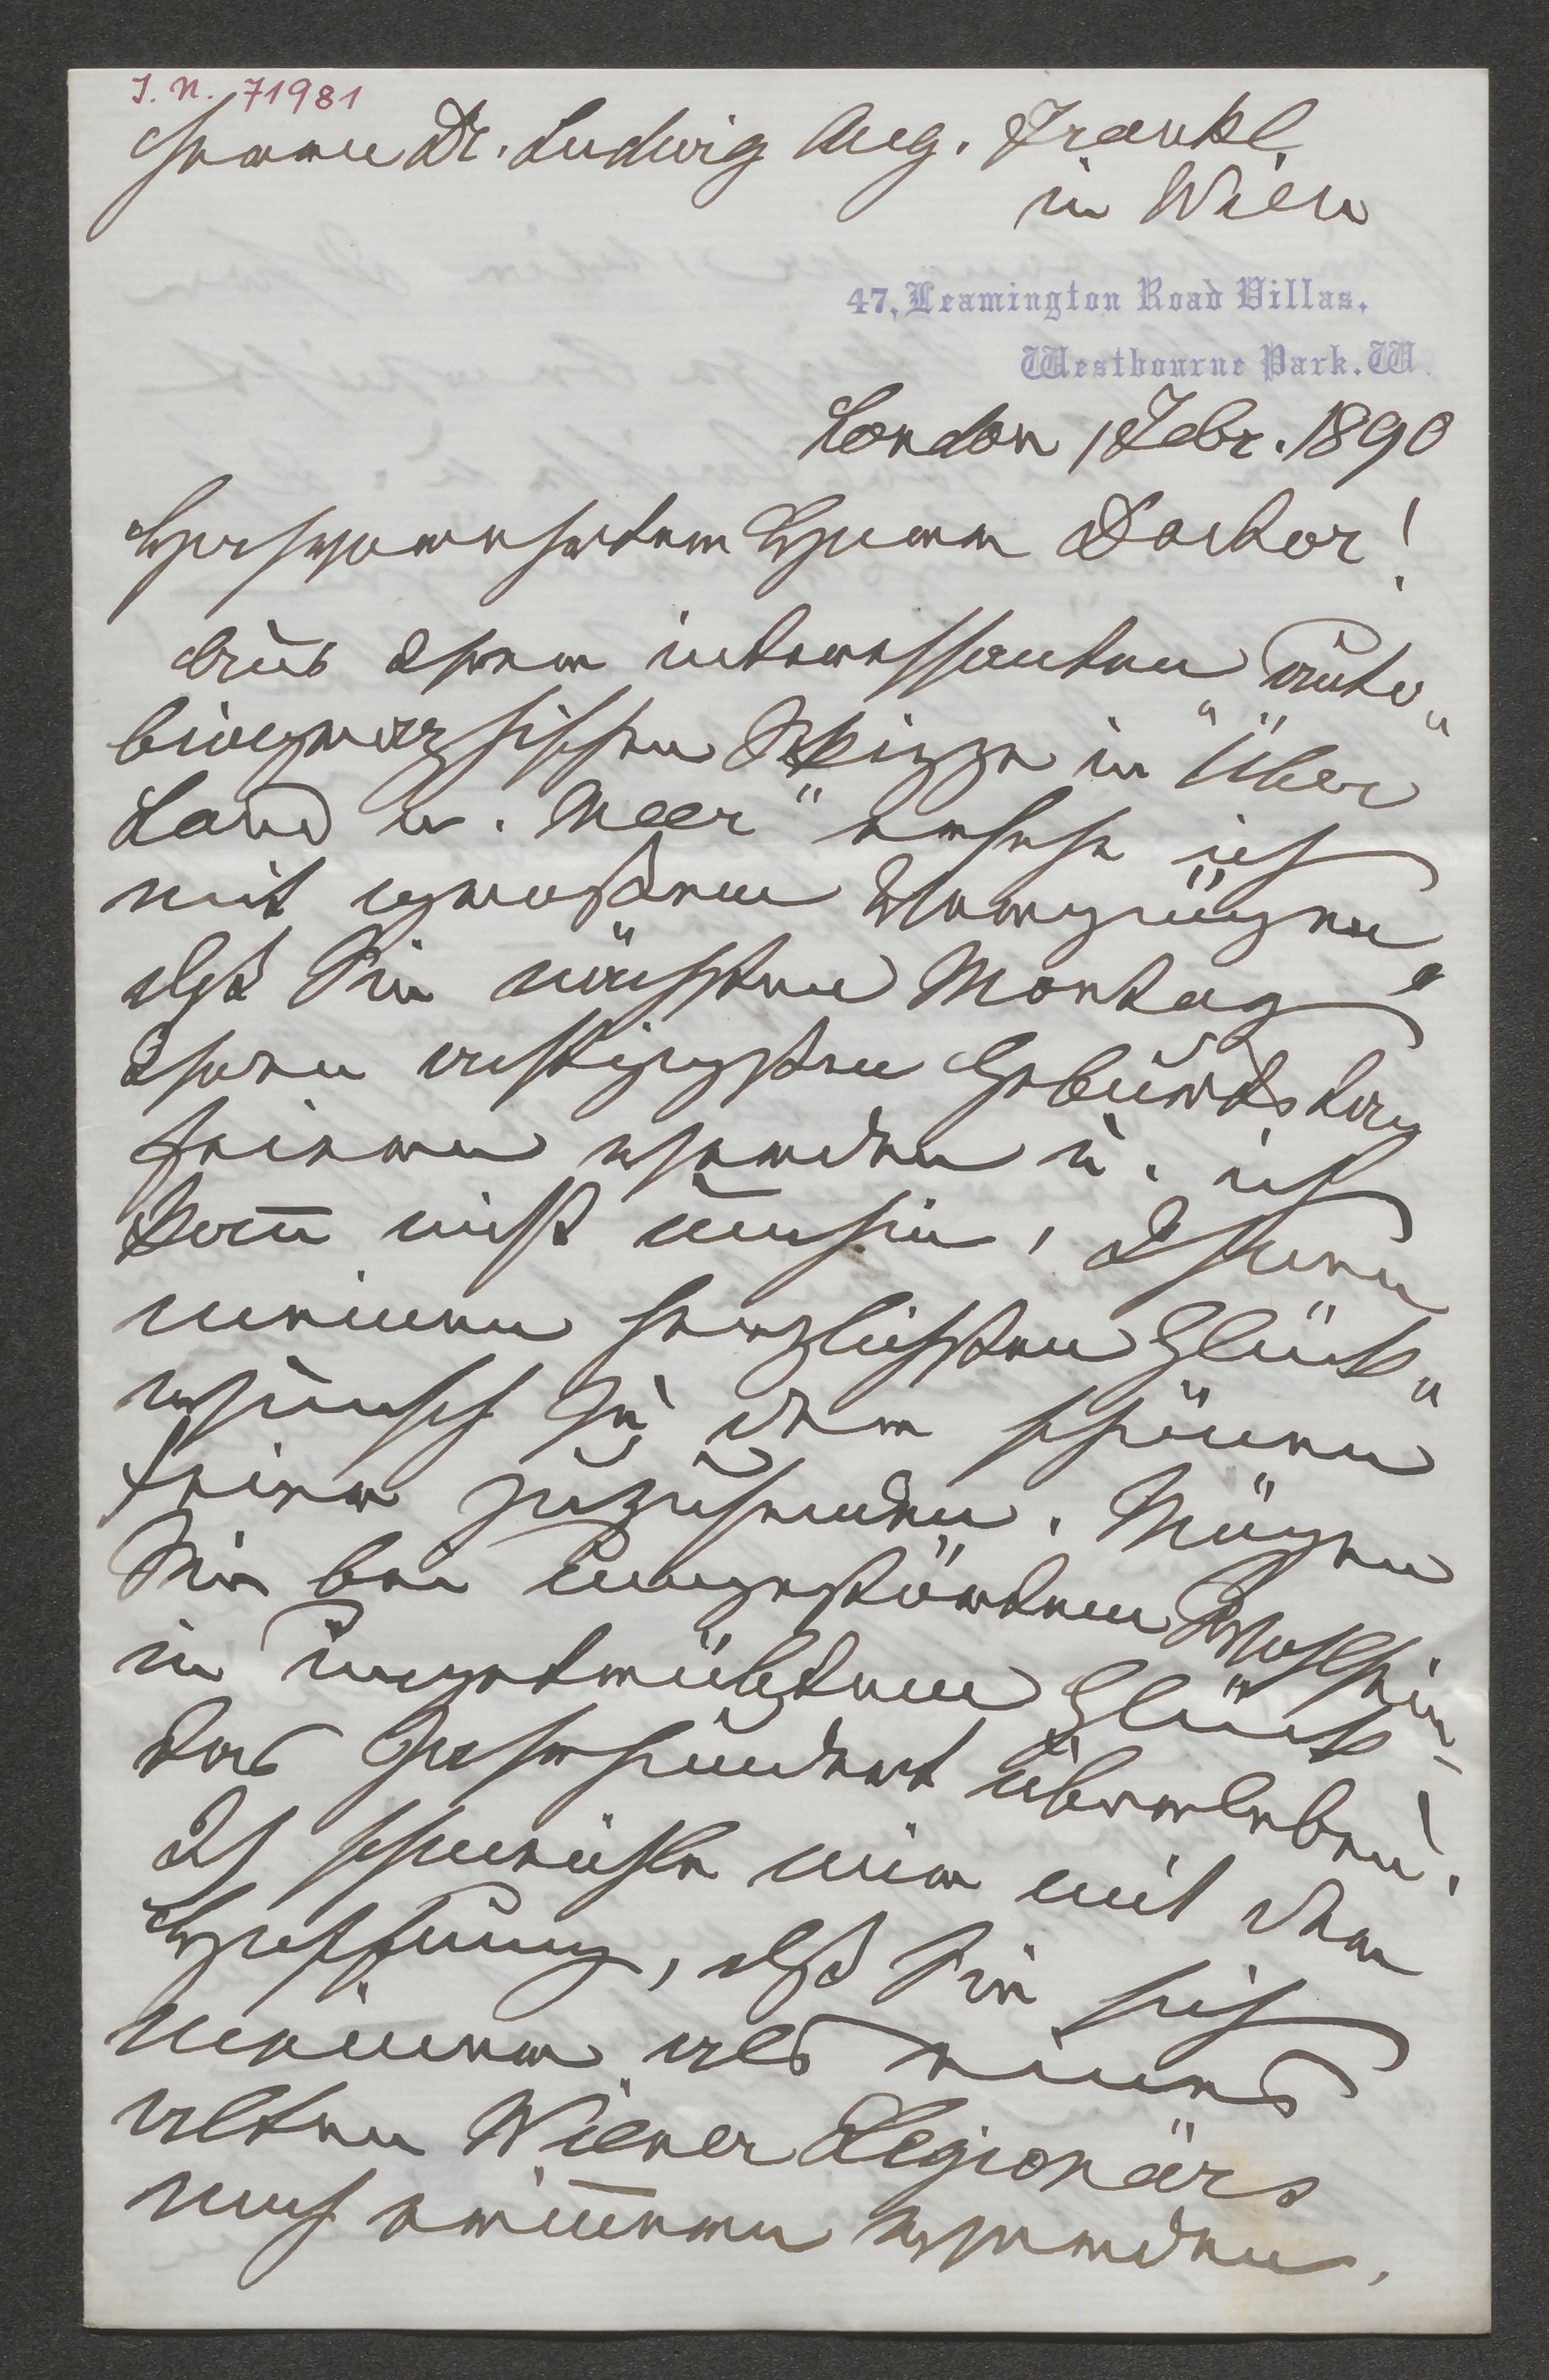 I. N. 71981
Herrn Dr. Ludwig Aug. Frankl
in Wien
47, Leamington Road Villas,
Westbourne Park. W.
London 1 Febr. 1890
Hochverehrter Herr Doctor!
Aus Ihrer interessanten auto„
biographischen Skizze in "Über
Land u. Meer" ersehe ich
mit großem Vergnügen,
daß Sie nächsten Montag
Ihren achtzigsten Geburtstag
feiern werden u. ich
kan̅ nicht umhin, Ihnen
meinen herzlichsten Glück„
wunsch zu der schönen
Feier zuzusenden. Mögen
Sie bei ungestörtem Wohlsein
in ungetrübtem Glück
das Jahrhundert überleben!
Ich schmeichle mir mit der
Hoffnung, daß Sie sich
meiner als eines
alten Wiener Legionärs
noch erin̅ern werden,